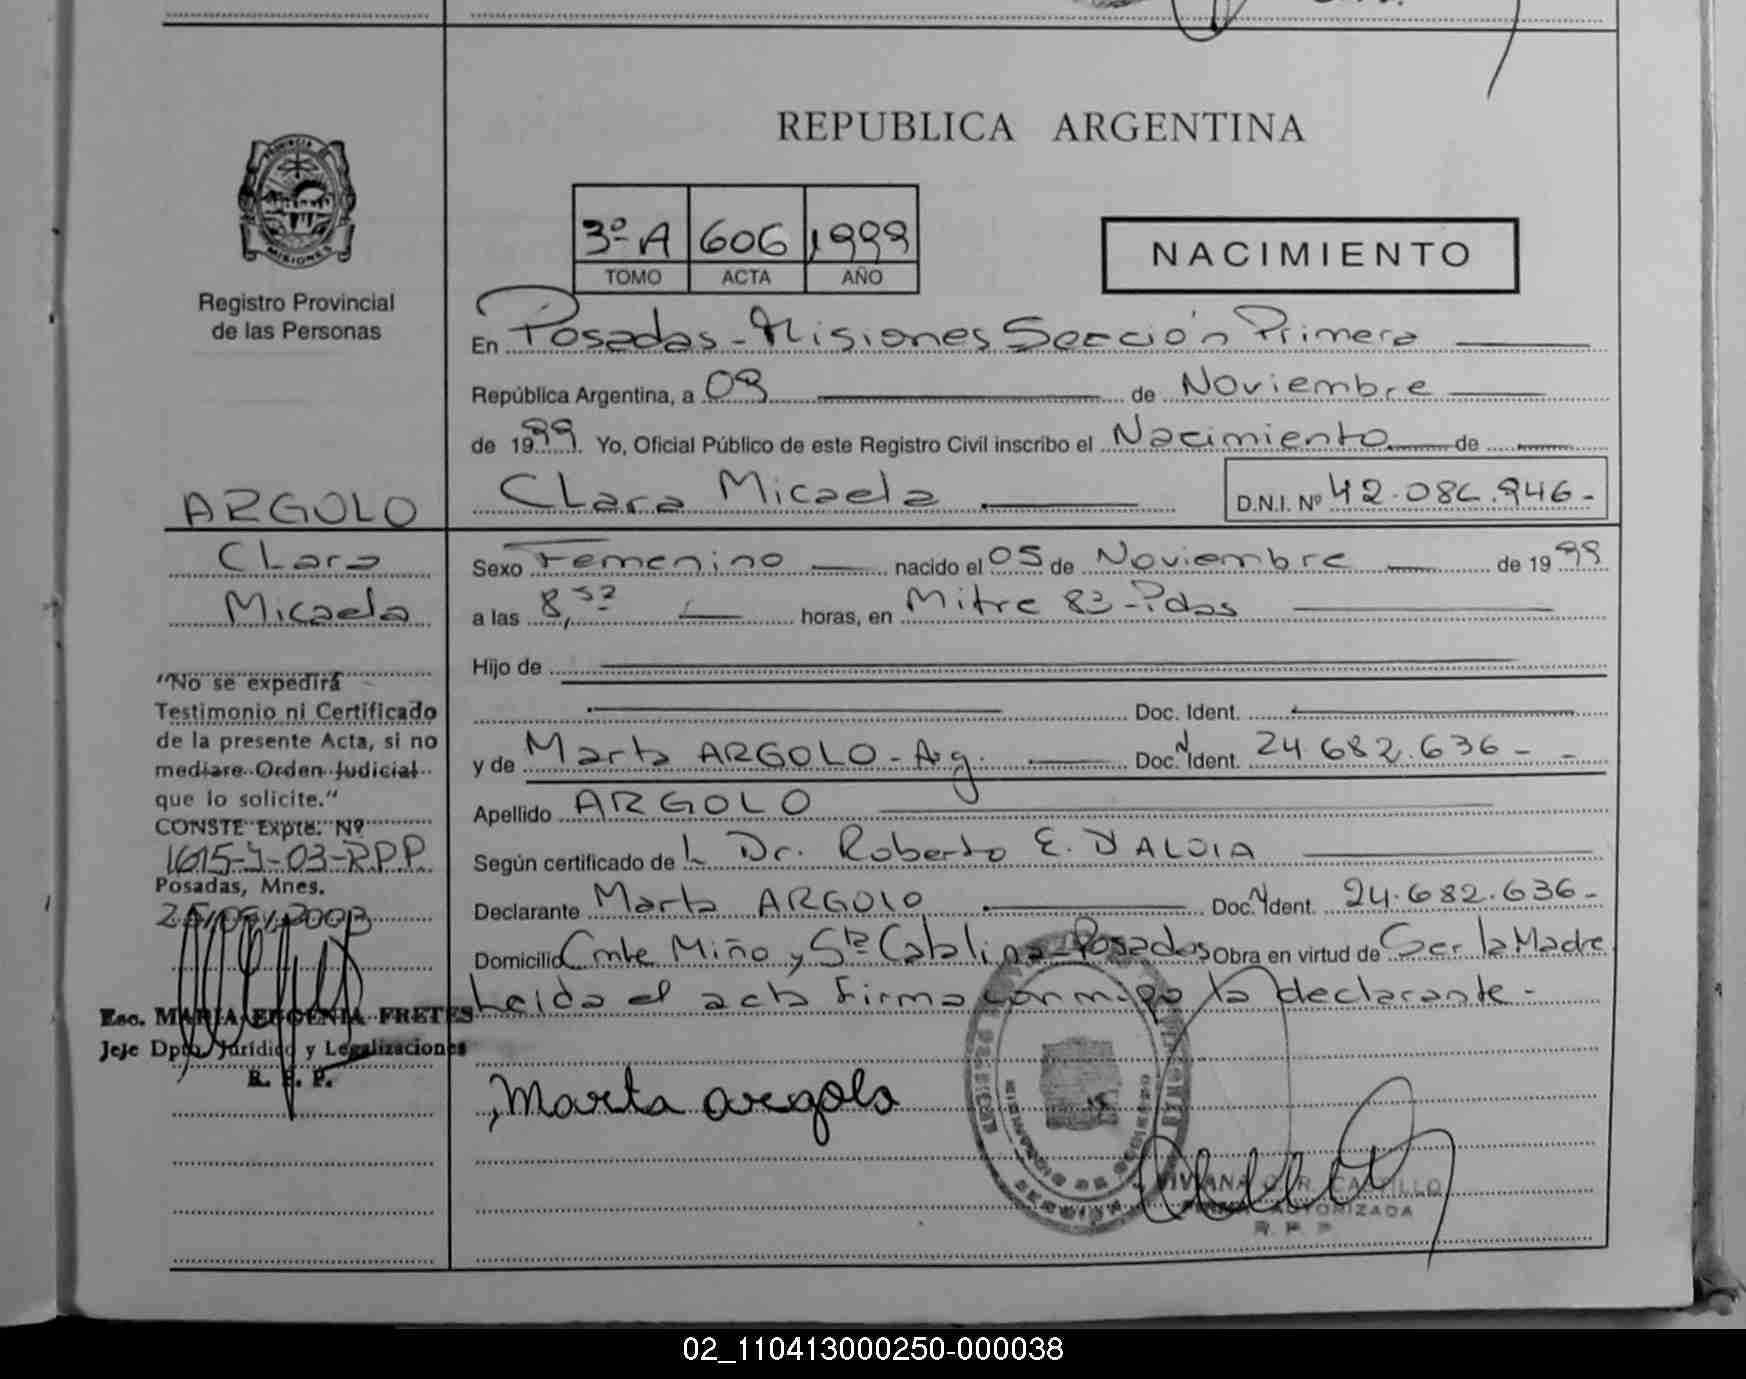 REPUBLICA ARGENTINA
PROVINCIA DE
MISIONES
Registro Provincial
de las Personas
3º A 606 1999
TOMO ACTA AÑO
NACIMIENTO
En Posadas - Misiones Sección Primera
República Argentina, a 09 de Noviembre
de 1999. Yo, Oficial Público de este Registro Civil inscribo el Nacimiento de
Clara Micaela D.N.I. Nº 42.086.946-
ARGOLO
Clara
Micaela
"No se expedirá
Testimonio ni Certificado
de la presente Acta, si no
mediare Orden Judicial
que lo solicite."
CONSTE Expte. Nº
1615-Y-03-R.P.P.
Posadas, Mnes.
2003
Esc. MARIA EUGENIA FRETES
Jeje Dpto. Jurídico y Legalizaciones
R. P. P.
Sexo Femenino nacido el 05 de Noviembre de 1999
a las 8, horas, en Mitre 83-Pdas
Hijo de
Doc. Ident.
y de Marta ARGOLO - Arg. Doc. N Ident. 24.682.636-
Apellido ARGOLO
Según certificado de L Dr. Roberto E. D'ALOIA
Declarante Marta ARGOLO Doc. N Ident. 24.682.636-
Domicilio Cmte Miño y Sta Catalina-Posadas Obra en virtud de Ser la Madre
Leida el acta firma conmigo la declarante-
Marta argolo
VIVIANA R. CASTILLO
AUTORIZADA
R. P. P.
02_110413000250-000038